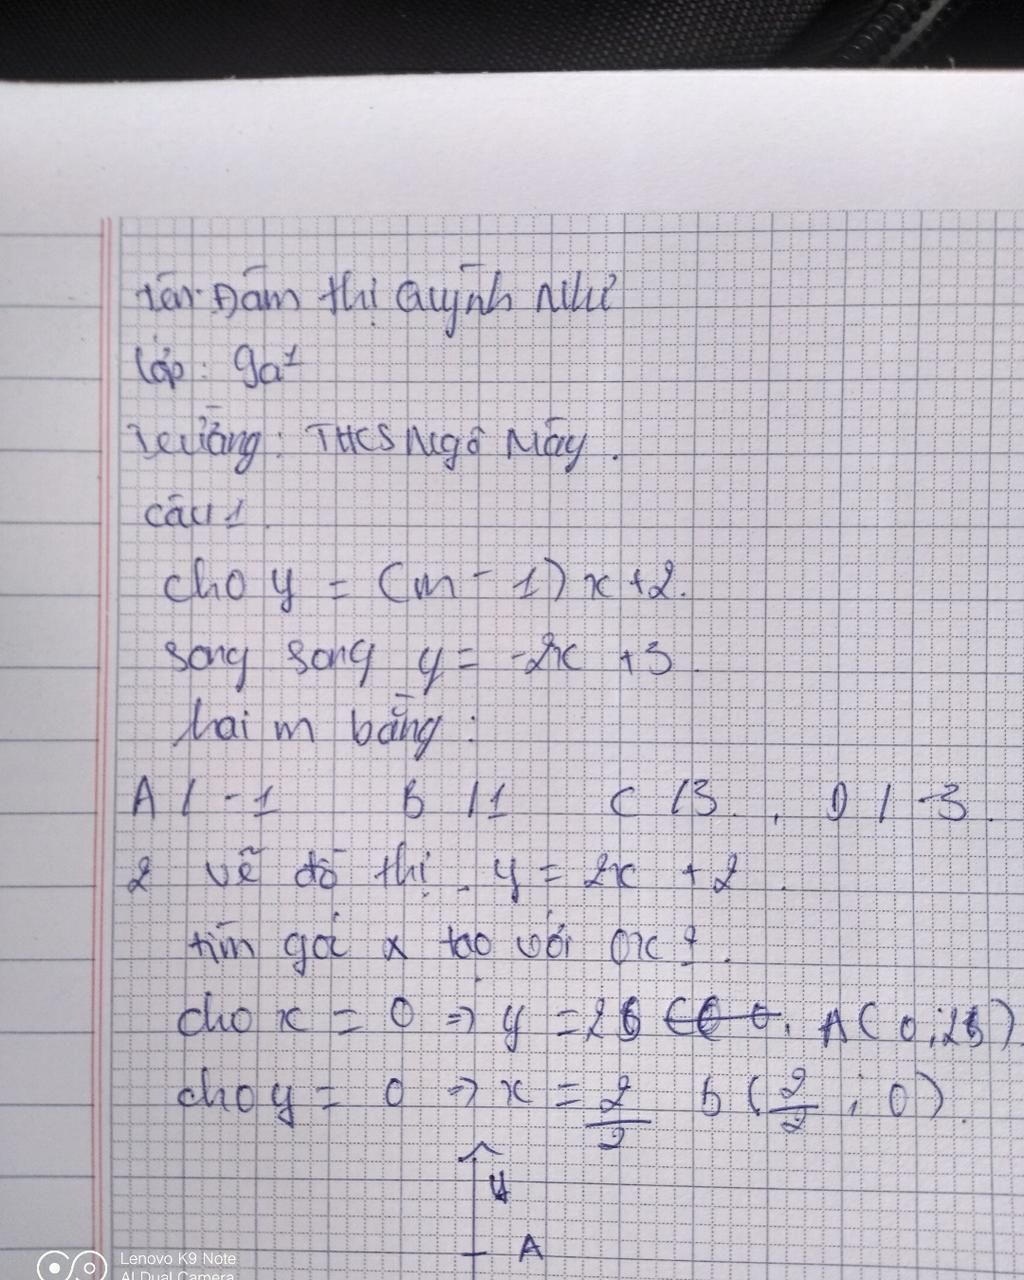 tên: Đàm thị Quỳnh Như
lớp: 9a1
Trường: THCS Ngô Mây.
câu 1.
cho y = (m - 1) x + 2.
song song y = -2x + 3.
hai m bằng:
A / -1 B / 1 C / 3. , D / -3.
2 vẽ đồ thị. y = 2x + 2.
tìm gói α tạo với Ox?.
cho x = 0 => y = 2 A(0;2)
cho y = 0 => x = 2/2 b (2/2 ; 0).
y
A
Lenovo K9 Note
AI Dual Camera